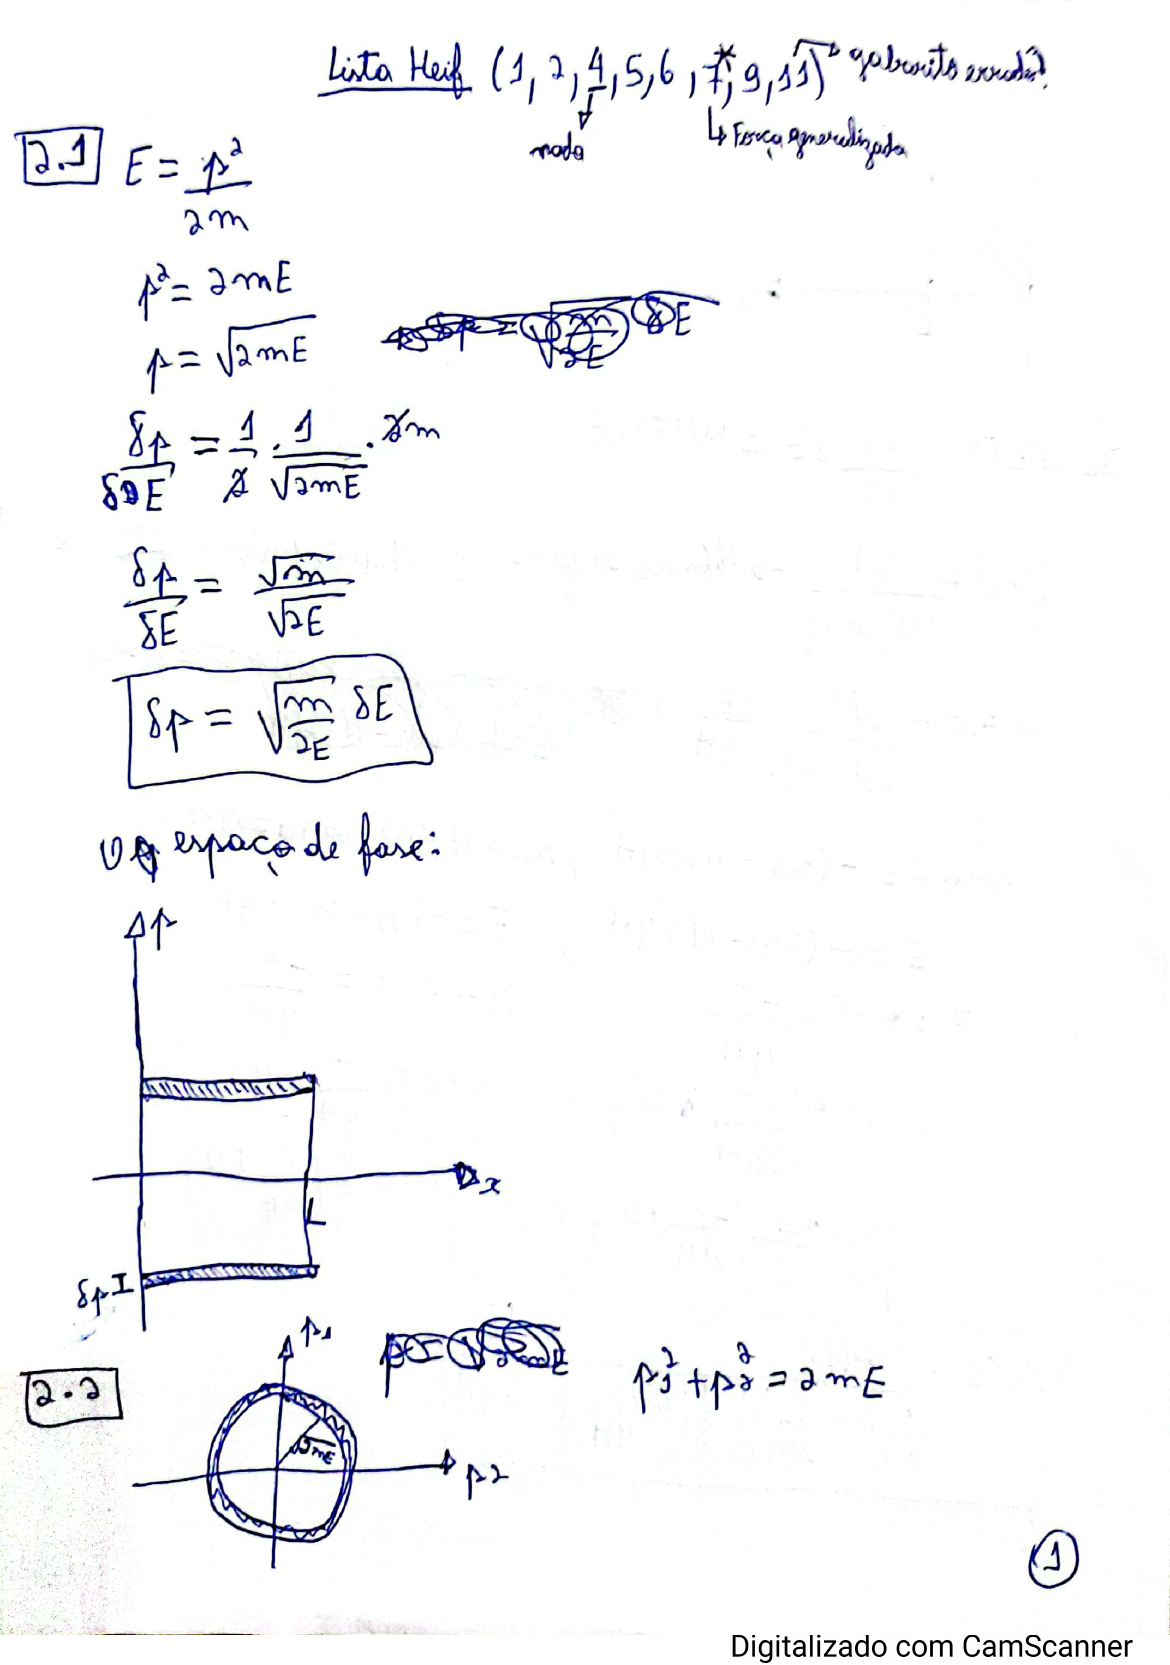 Lista Reif (1, 2, 4, 5, 6, 7*, 9, 11) → gabarito errado?
nada
↳ Força generalizada
2.1 E = p²/2m
p² = 2mE
p = √2mE
δp/δE = 1/2 · 1/√2mE · 2m
δp/δE = √m/√2E
δp = √m/2E δE
O espaço de fase:
p
x
L
δp I
2.2
p1
√2mE
p2
p1² + p2² = 2mE
1
Digitalizado com CamScanner